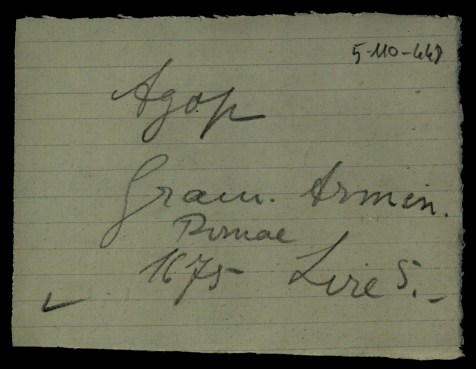 5-110-448
Agop
Gram. Armen.
Romae
1675 Lire 5.-